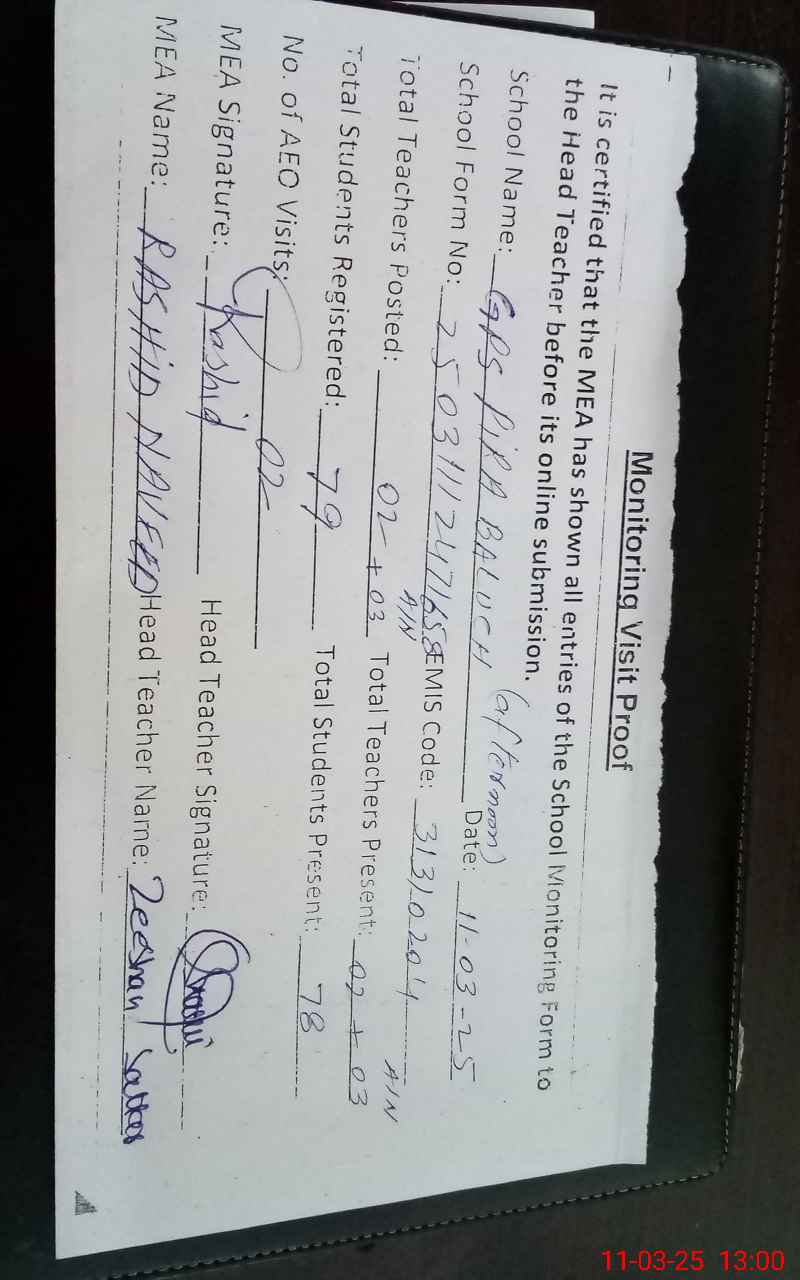 Monitoring Visit Proof
It is certified that the MEA has shown all entries of the School Monitoring Form to
the Head Teacher before its online submission.
School Name: GPS PIRA BALUCH (afternoon) Date: 11-03-25
School Form No: 25031112471658 EMIS Code: 31310204
A/N A/N
Total Teachers Posted: 02 + 03 Total Teachers Present: 02 + 03
Total Students Registered: 79 Total Students Present: 78
No. of AEO Visits: 02
MEA Signature: Rashid Head Teacher Signature:
MEA Name: RASHID NAVEED Head Teacher Name: Zeeshan Sattar
11-03-25 13:00